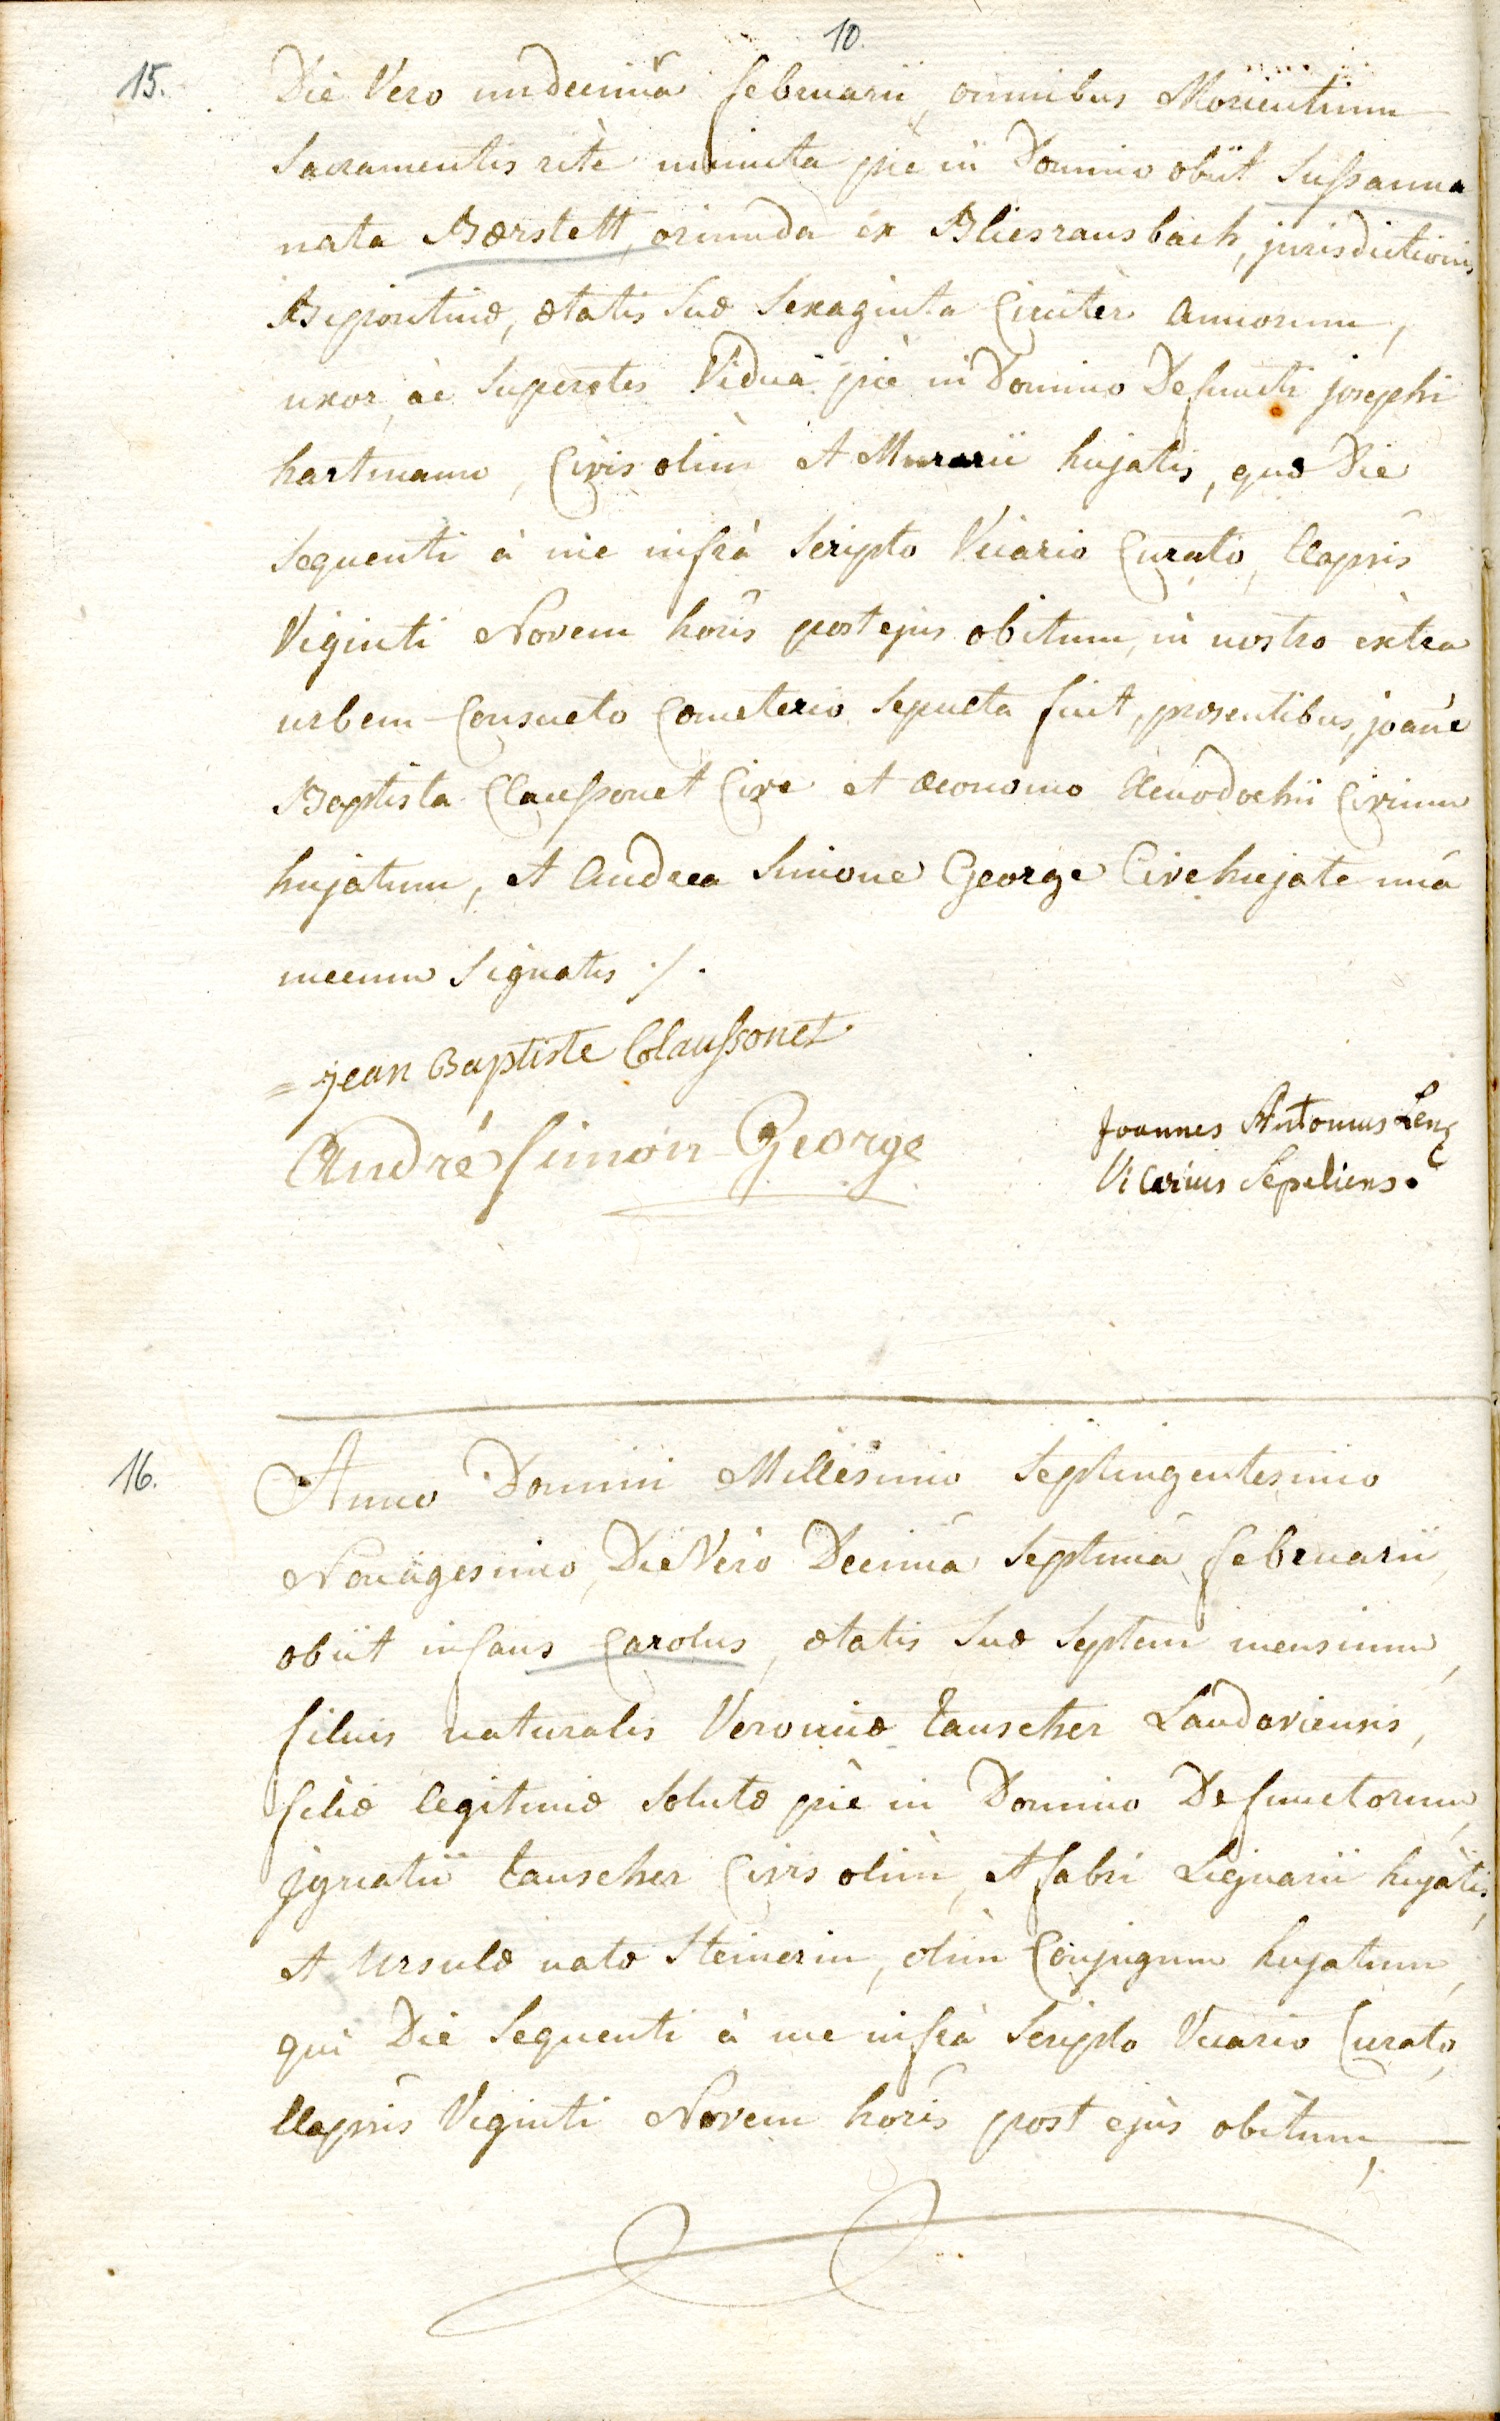 10.
15. Die Vero undecimâ februarii, omnibus Morientium
Sacramentis ritè munita piè in Domino obiit Sussanna
nata Bærstett, oriunda ex Bliesransbach, jurisdictionis
Bipontinæ, ætatis suæ Sexaginta Circiter annorum,
uxor, ac Superstes Vidua piè in Domino Defuncti josephi
hartmann, Civis olim et Murarii hujatis, quæ Die
sequenti à me infrà Scripto Vicario Curato, Elapsis
Viginti Novem horis post ejus obitum, in nostro extra
urbem Consueto Cœmeterio Sepulta fuit, præsentibus, joañe
Baptista Claussonet Cive et œconomo Xenodochii Civium
hujatum, et Andrea Simone George Cive hujate unà
mecum Signatis ./.
= jean Baptiste Claussonet
André simon George
Joannes Antonius Lenz
Vicarius Sepeliens.
16. Anno Domini Millesimo Septingentesimo
Nonagesimo, Die Vero Decimâ Septimâ februarii,
obiit infans Carolus, ætatis suæ Septem mensium,
filius naturalis Veronicæ Tauscher Landaviensis,
filiæ legitimæ Solutæ piè in Domino Defunctorum,
jgnatii Tauscher Civis olim, et fabri Lignarii hujatis,
et Ursulæ natæ Steinerin, olim Conjugum hujatum,
qui Die Sequenti à me infrà Scripto Vicario Curato,
Elapsis Viginti Novem horis post ejus obitum,